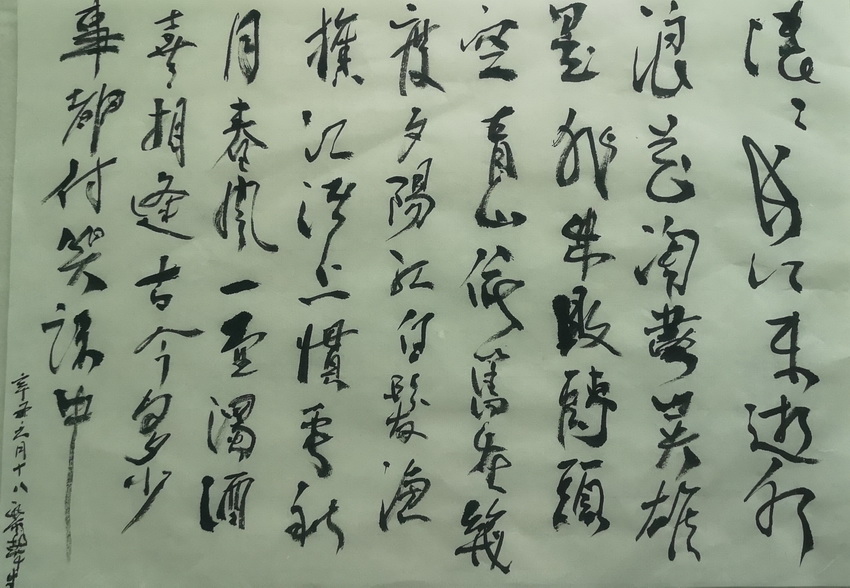 滾々長江東逝水
浪花淘盡英雄
是非成敗轉頭
空青山依舊在幾
度夕陽紅白髮漁
樵江渚上慣看秋
月春風一壺濁酒
喜相逢古今多少
事都付笑談中
辛丑六月十八